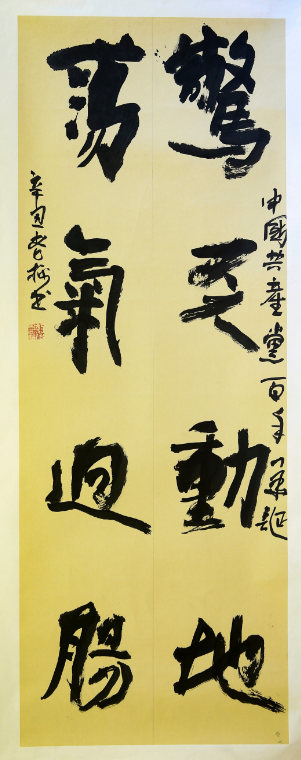 中國共產黨百年華誕
驚天動地
蕩氣迴腸
辛丑
書